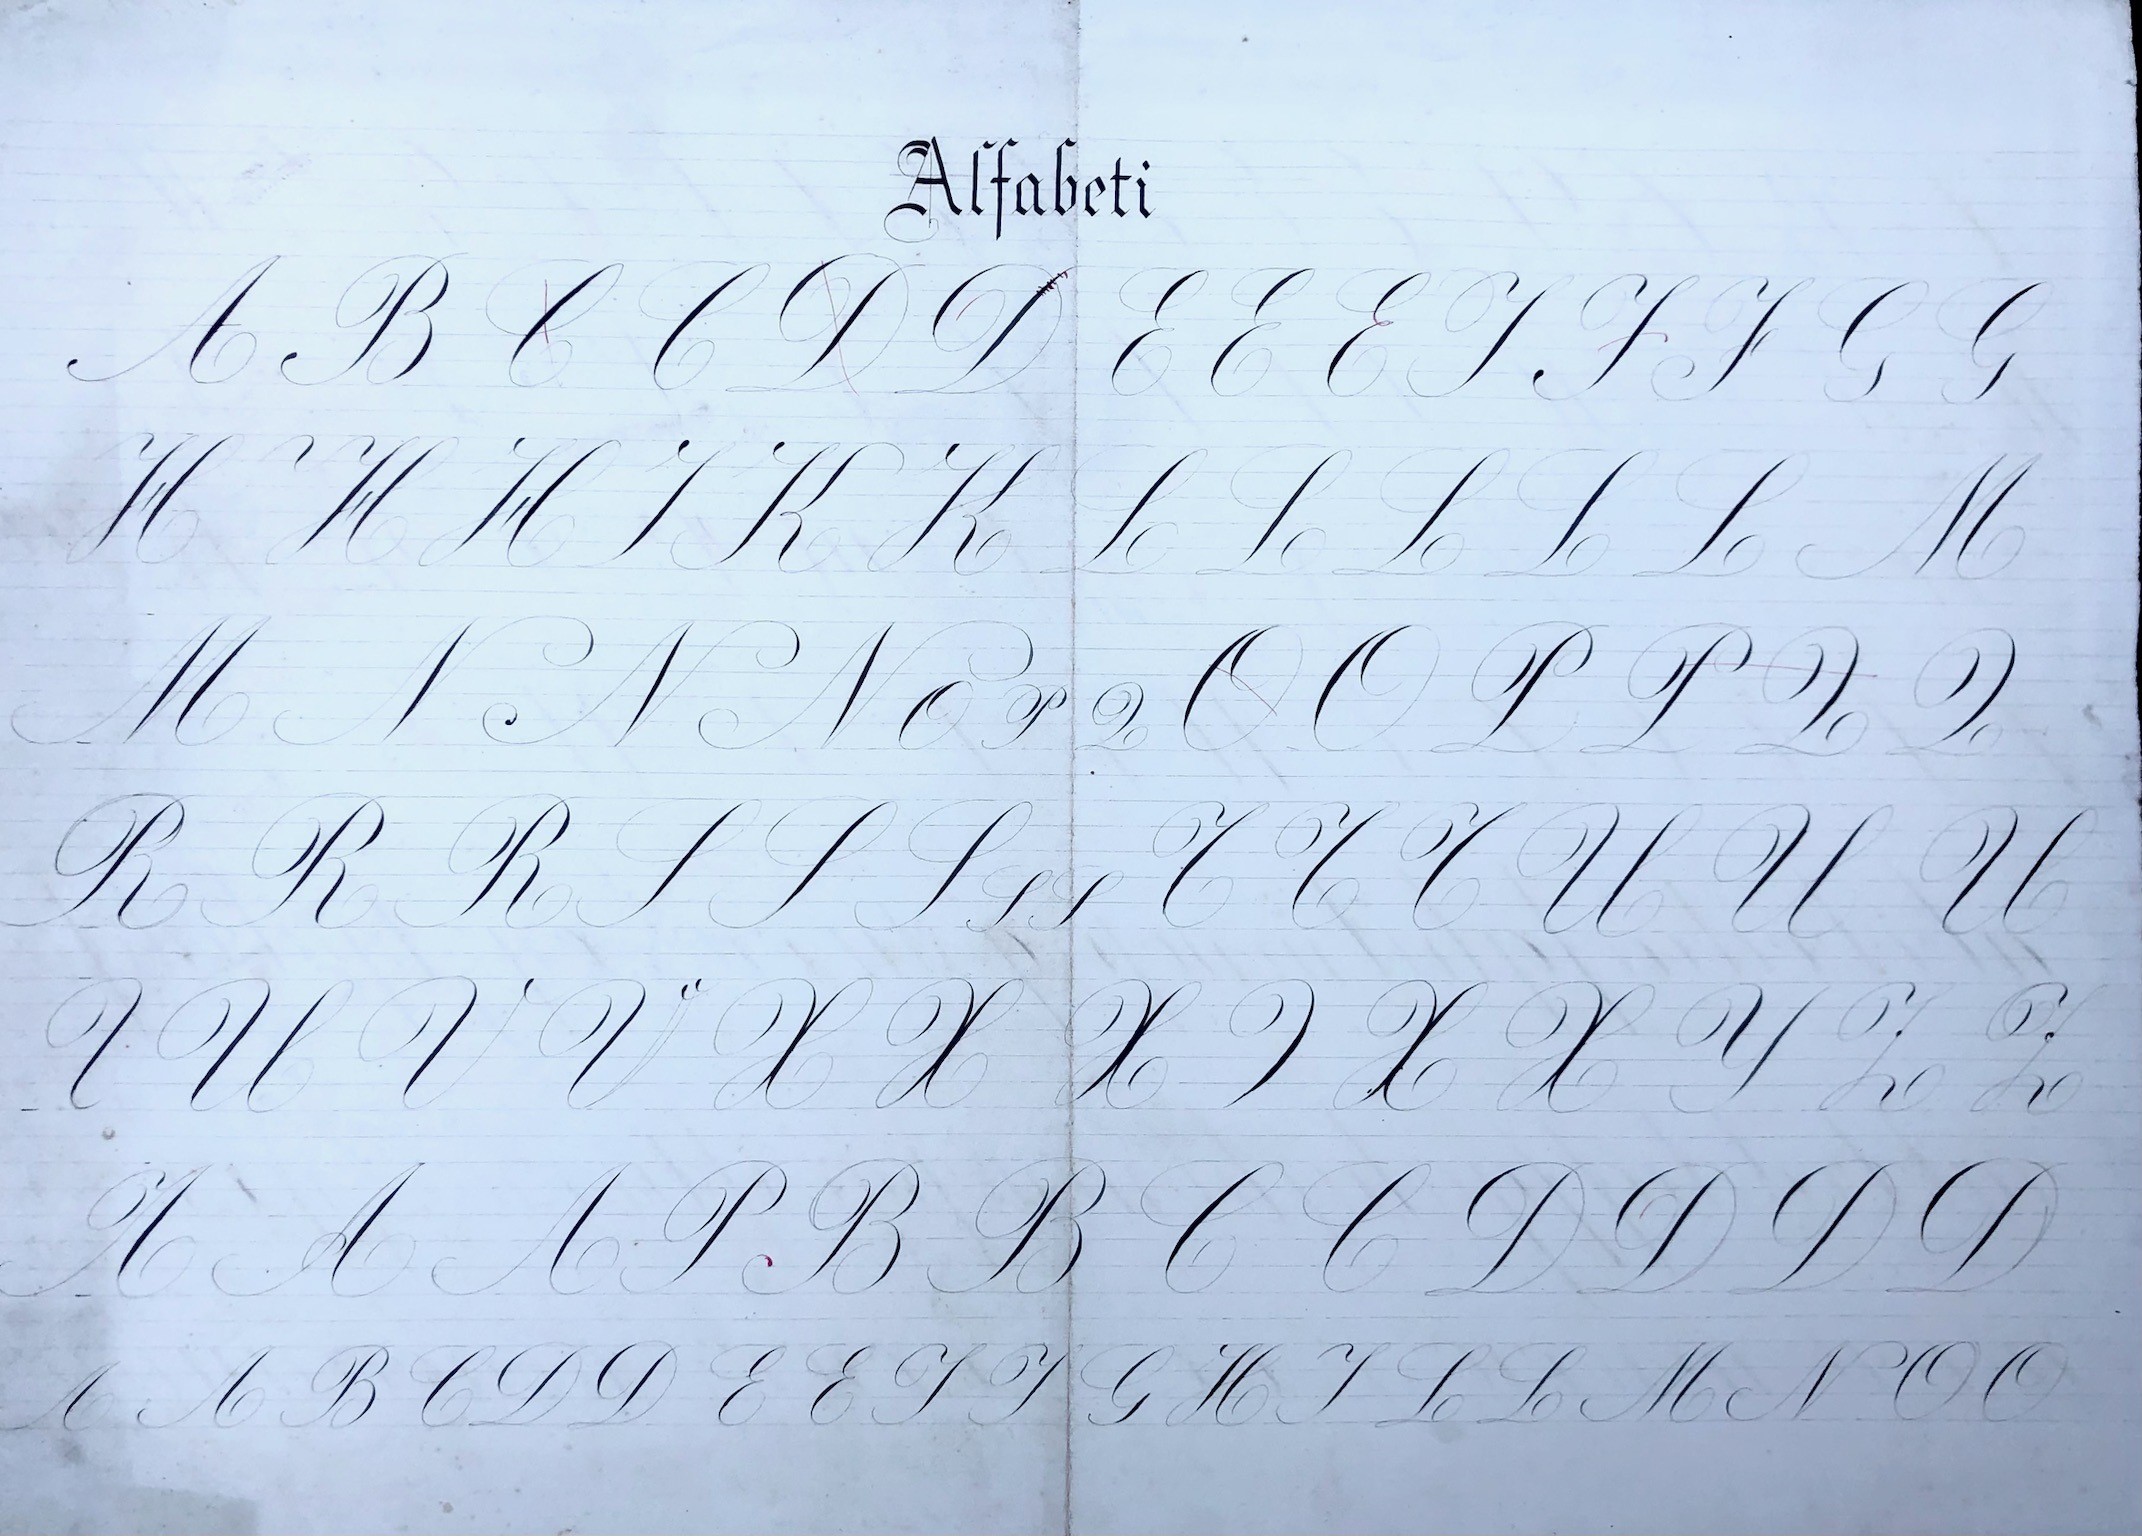 Alfabeti
A B C C D D E E E I F F G G
H H H I K K L L L L L M
M N N N O P Q O O P P Q Q
R R R S S S S S T T T U U U
U V V X X X X X Y Z Z
A A A P B B C C D D D D
A A B C D D E E I I G H I L L M N O O